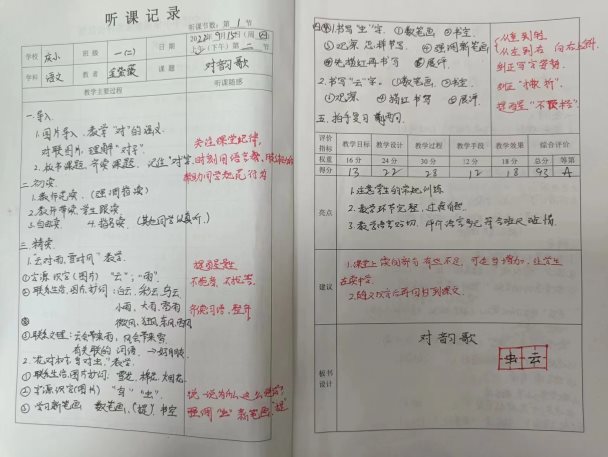 听课记录
听课节数：第 1 节
2022年9月15日(周四)
上午(下午) 第二节
学校 班级 一(二) 日期
学科 语文 教者 课题 对韵歌
教学主要过程 听课随感
一.导入
1.图片导入，教学"对"的语义
对联图片，理解"对子"。
2.板书课题，齐读课题，记住"对"字
关注课堂纪律，
时刻用语言
帮助同学规范行为
二.初读
1.教师范读。(强调指读)
2.教师带读，学生跟读
3.自由读 4.指名读 (其他同学认真听)
三.精读
1."云对雨，雪对风"教学。
①字源识字(图片) "云"；"雨"。
提醒学生
②联系生活，图片妙词：白云，彩云，乌云
小雨，大雨，雷雨
微风，狂风，东风，西风
③联系文理：云会带来雨，风会带来雪
有关联的词语，→好朋友
2."花对树，鸟对虫"教学。
①联系生活，图片妙词：雪花 棉花 火烧花
②字源识字(图片) "鸟" "虫"
说一说为什么这么
③学习新笔画 数笔画，(提)，书空
强调"虫"新笔画"提"
四.1.书写"虫"字. ①数笔画 ②书空.
③观察 怎样书写. ④强调新笔画
⑤先描红再书写 ⑥展评.
从左到右 向右上斜
纠正写字姿势
2.书写"云"字. ①数笔画，②书空.
③观察 ④描红书写 ⑤展评.
提醒
五.拍手复习
评价指标 教学目标 教学设计 教学过程 教学手段 教学效果 综合评价
权重 16分 24分 30分 12分 18分 总分 等第
得分 13 22 28 12 18 93 A
亮点
1.注意学生的常规训练
2.教学环节完整，过渡自然.
3.教学语言亲切，
建议
1.课堂上读词部分有些不足，可适当增加，让学生
在读中学.
2.随文识字后再回到课文.
板书设计
对韵歌
虫 云